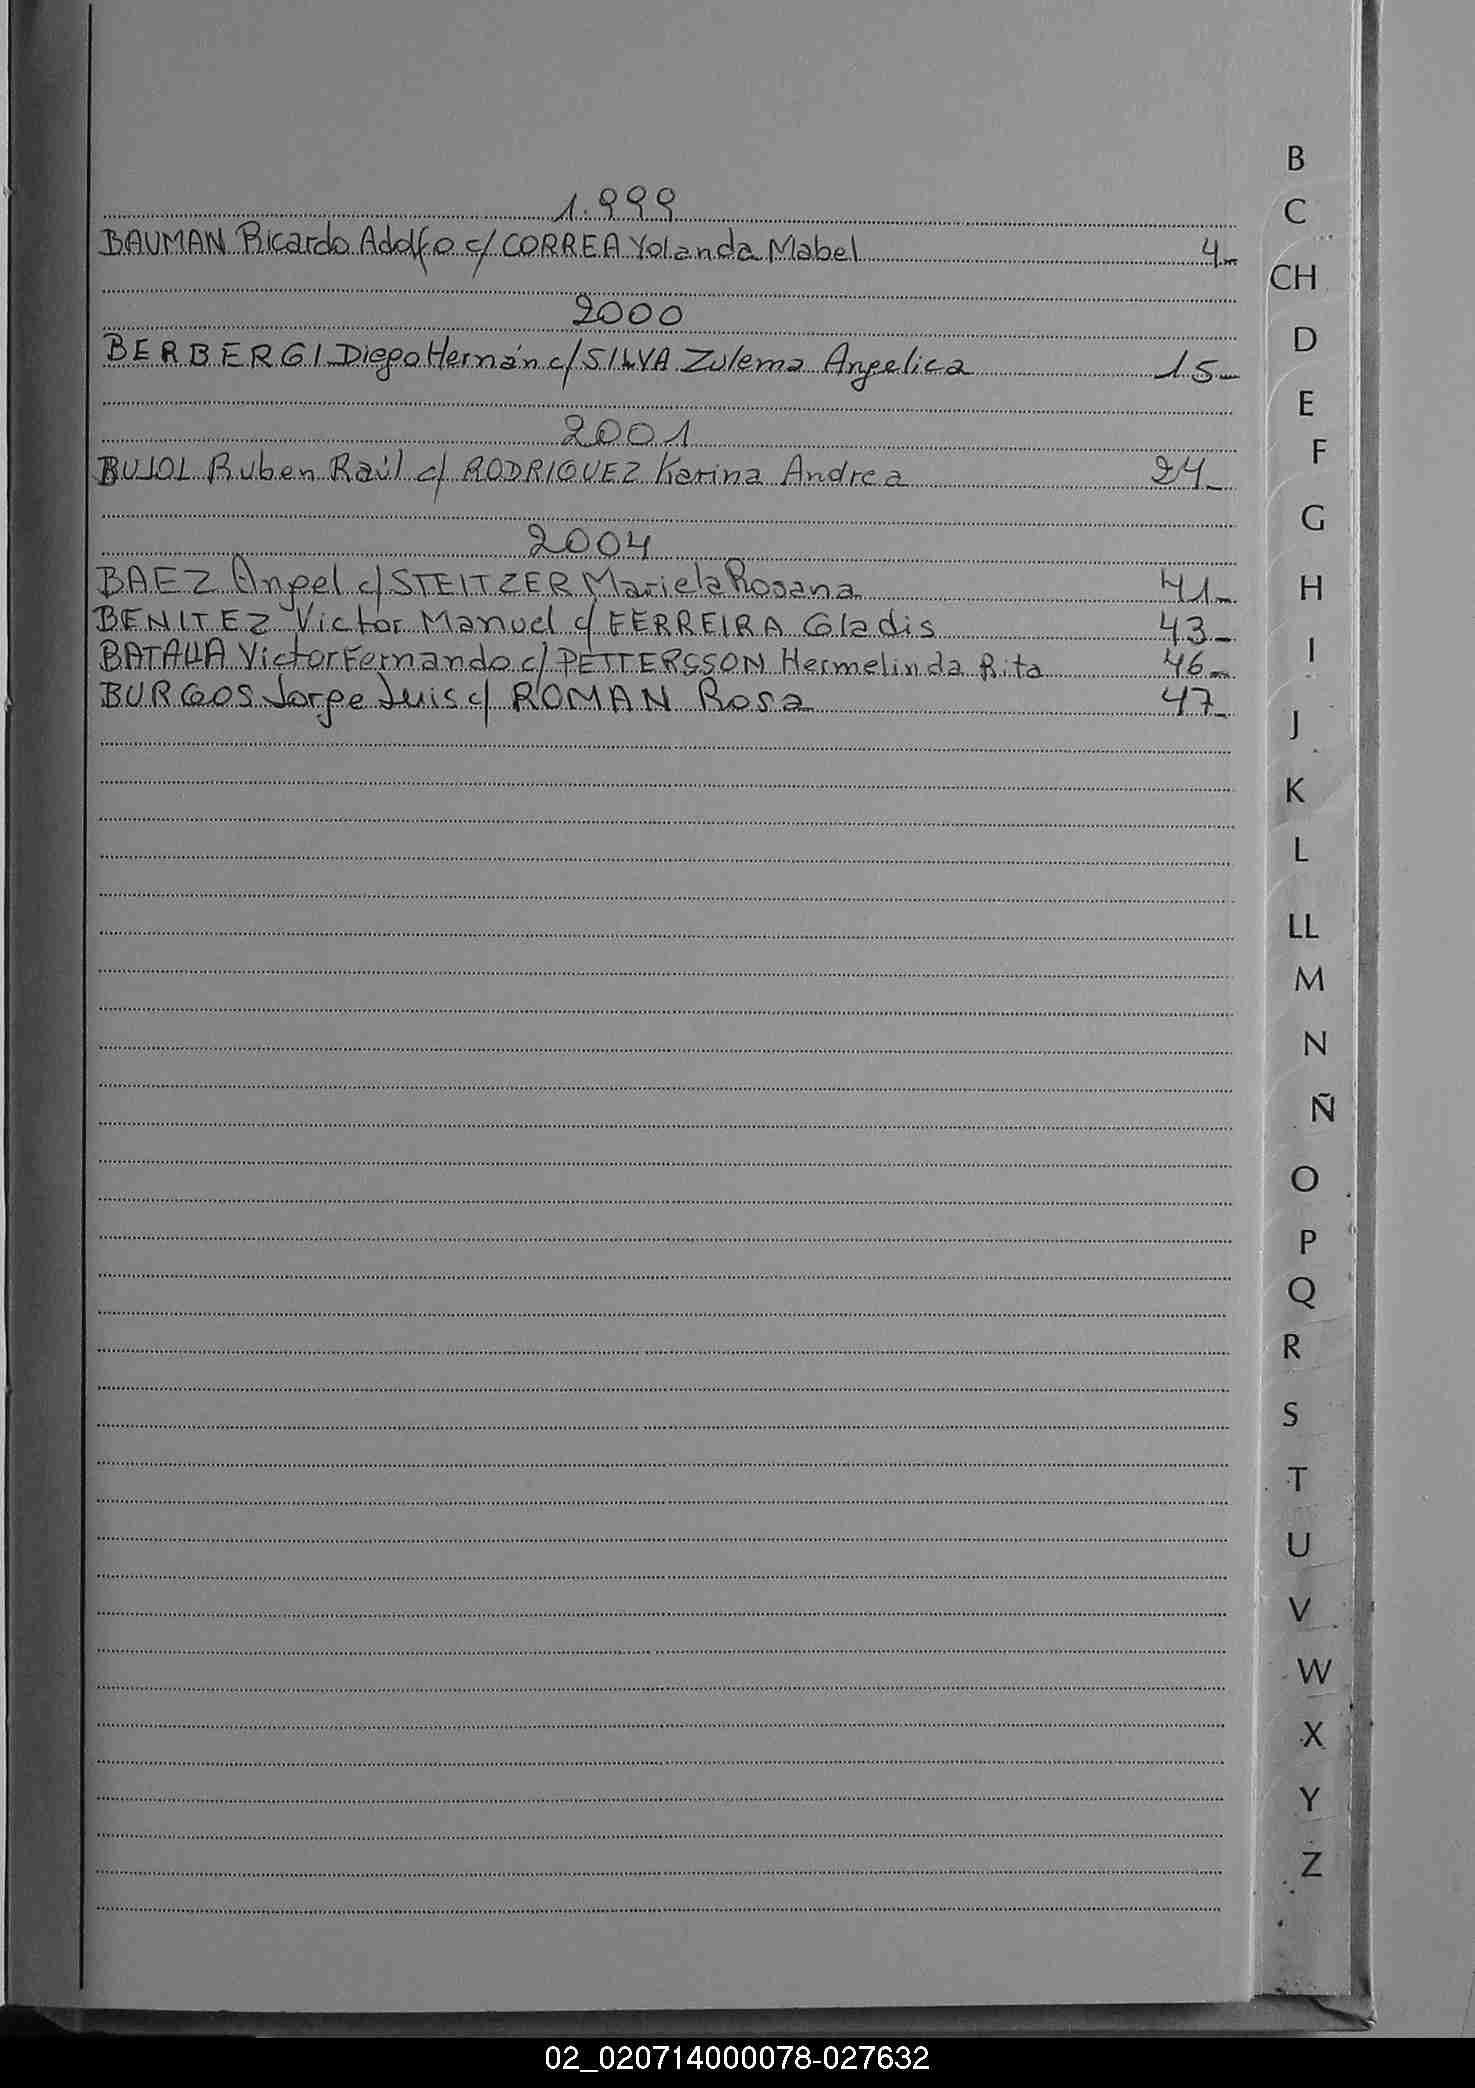 1.999
BAUMAN Ricardo Adolfo c/ CORREA Yolanda Mabel 4-
2000
BERBERGI Diego Hernán c/ SILVA Zulema Angelica 15-
2001
BUJOL Ruben Raúl c/ RODRIGUEZ Karina Andrea 24-
2004
BAEZ Angel c/ STEITZER Mariela Rosana 41-
BENITEZ Victor Manuel c/ FERREIRA Gladis 43-
BATALLA Victor Fernando c/ PETTERSSON Hermelinda Rita 46-
BURGOS Jorge Luis c/ ROMAN Rosa 47-
B
C
CH
D
E
F
G
H
I
J
K
L
LL
M
N
Ñ
O
P
Q
R
S
T
U
V
W
X
Y
Z
02_020714000078-027632